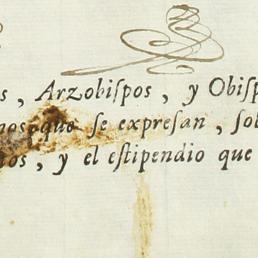 s, Arzobiſpos, y Obiſp
nos que se expresan, ſol
os, y el eſtipendio que